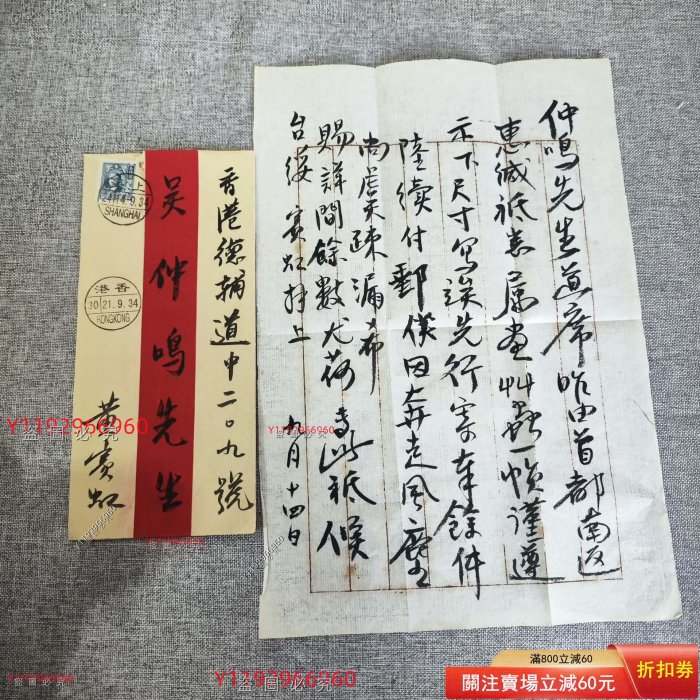 仲鳴先生道席昨由首都南返
惠緘祇悉屬畫艸蟲一幀謹遵
示下尺寸寫竣先行寄奉餘件
陸續付郵僕因奔走風塵
尚虞疎漏希
賜詳閒餘數尤荷專此祇候
台綏 賓虹拜上 九月十四日
香港德輔道中二〇九號
吳仲鳴先生
黃賓虹
上
SHANGHAI
港香
30 21.9.34
HONGKONG
Y1192966960
Y1192966960
Y1192966960
滿800立減60
關注賣場立減60元
折扣券